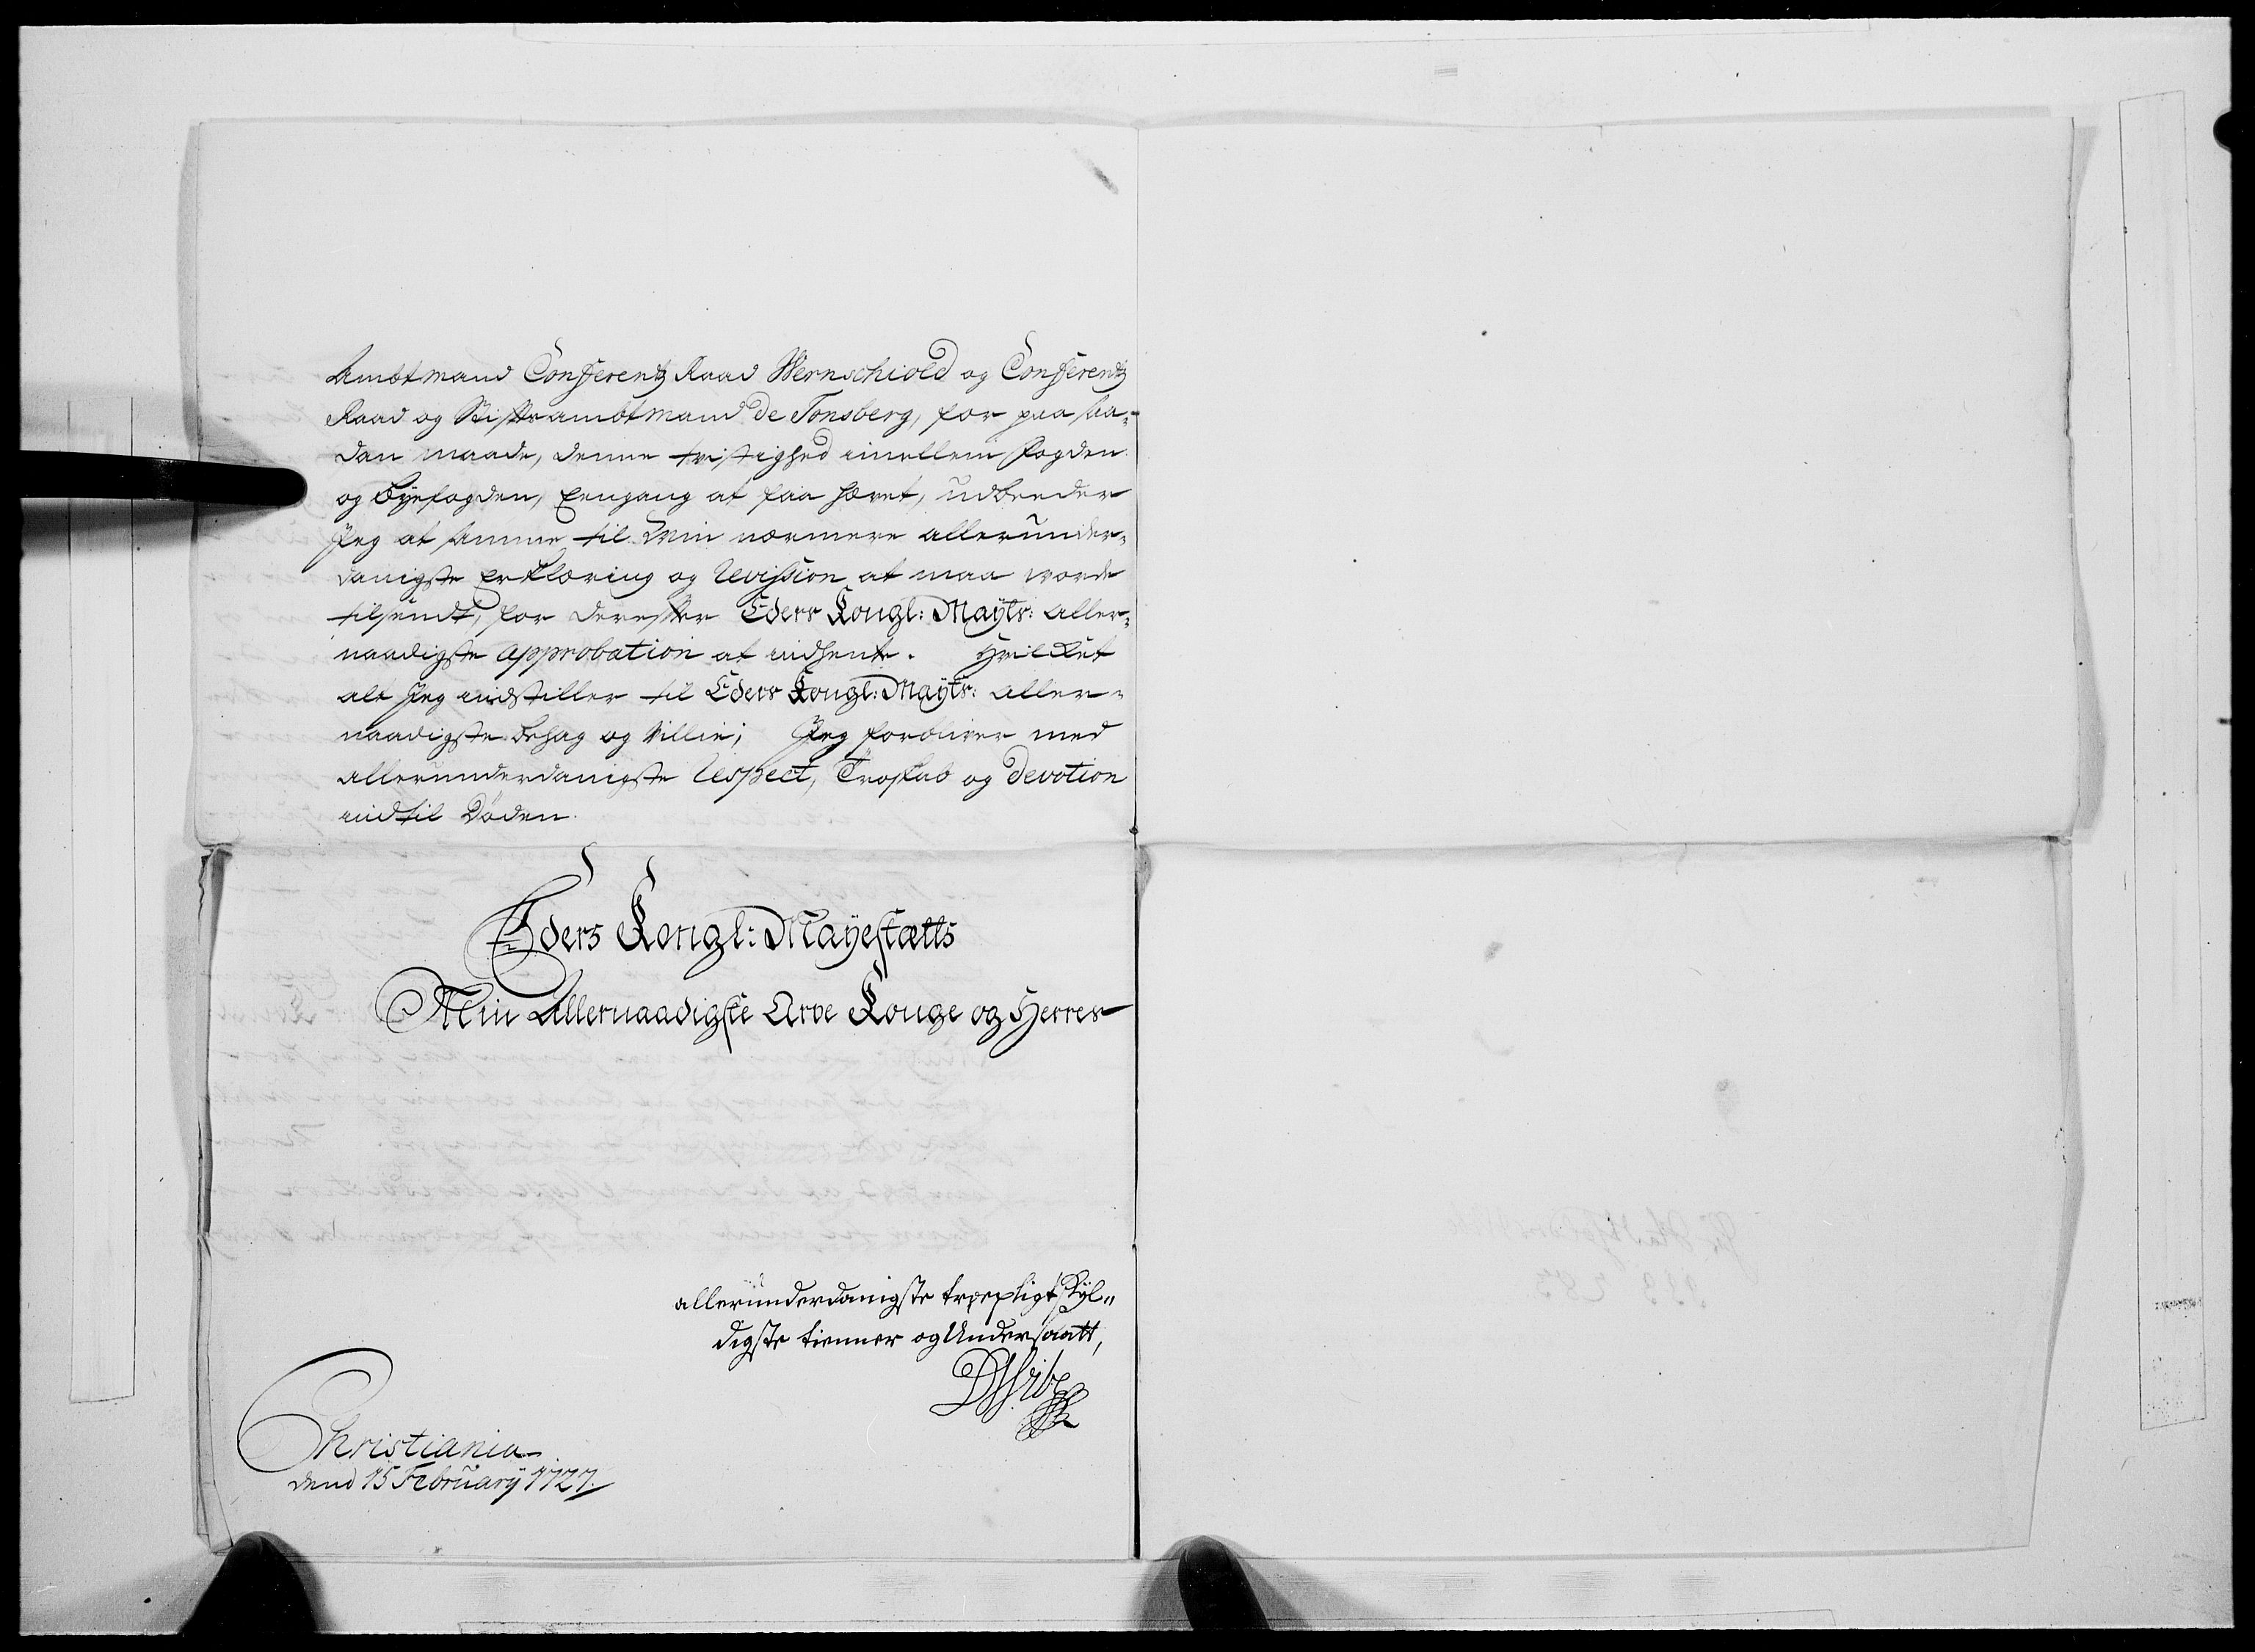 Ambtmand Conferentz Raad Wernschiold og Conferentz
Raad og Stiftsambtmand de Tonsberg, for paa saa-
dan maade, denne tvistighed imellem fogden
og byefogden, Eengang at faa hævet, udbeeder
Jeg at samme til Min nærmere allerunder-
danigste Erklæring og Revision at maa worde
tilsendt, for derefter Eders Kongl: Mayts: aller-
naadigste approbation at indhente. Hvilket
alt Jeg indstiller til Eders Kongl: Mayts: aller-
naadigste behag og villie; Jeg forbliver med
allerunderdanigste Respect, Troskab og devotion
indtil Døden.
Eders Kongl: Mayestætts
Min Allernaadigste Arve Konge og Herres
allerunderdanigste troepligt skyl-
digste tienner og Undersaatt,
DVibe
Christiania
dend 15 February 1727.